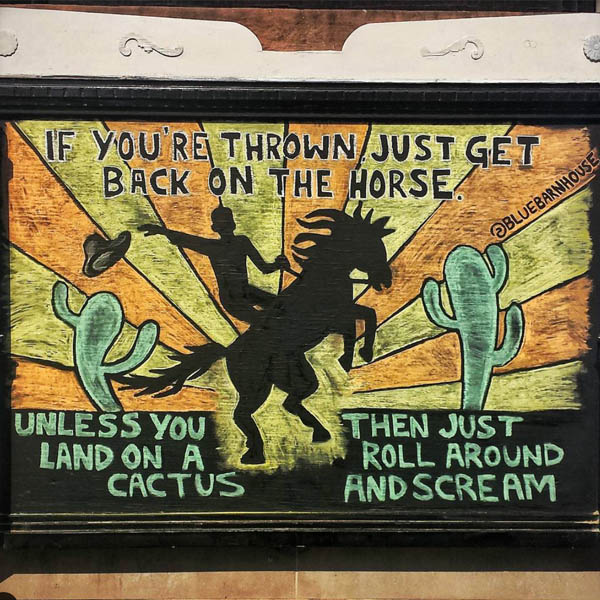 IF YOU'RE THROWN, JUST GET
BACK ON THE HORSE.
@BLUEBARNHOUSE
UNLESS YOU
LAND ON A
CACTUS
THEN JUST
ROLL AROUND
AND SCREAM